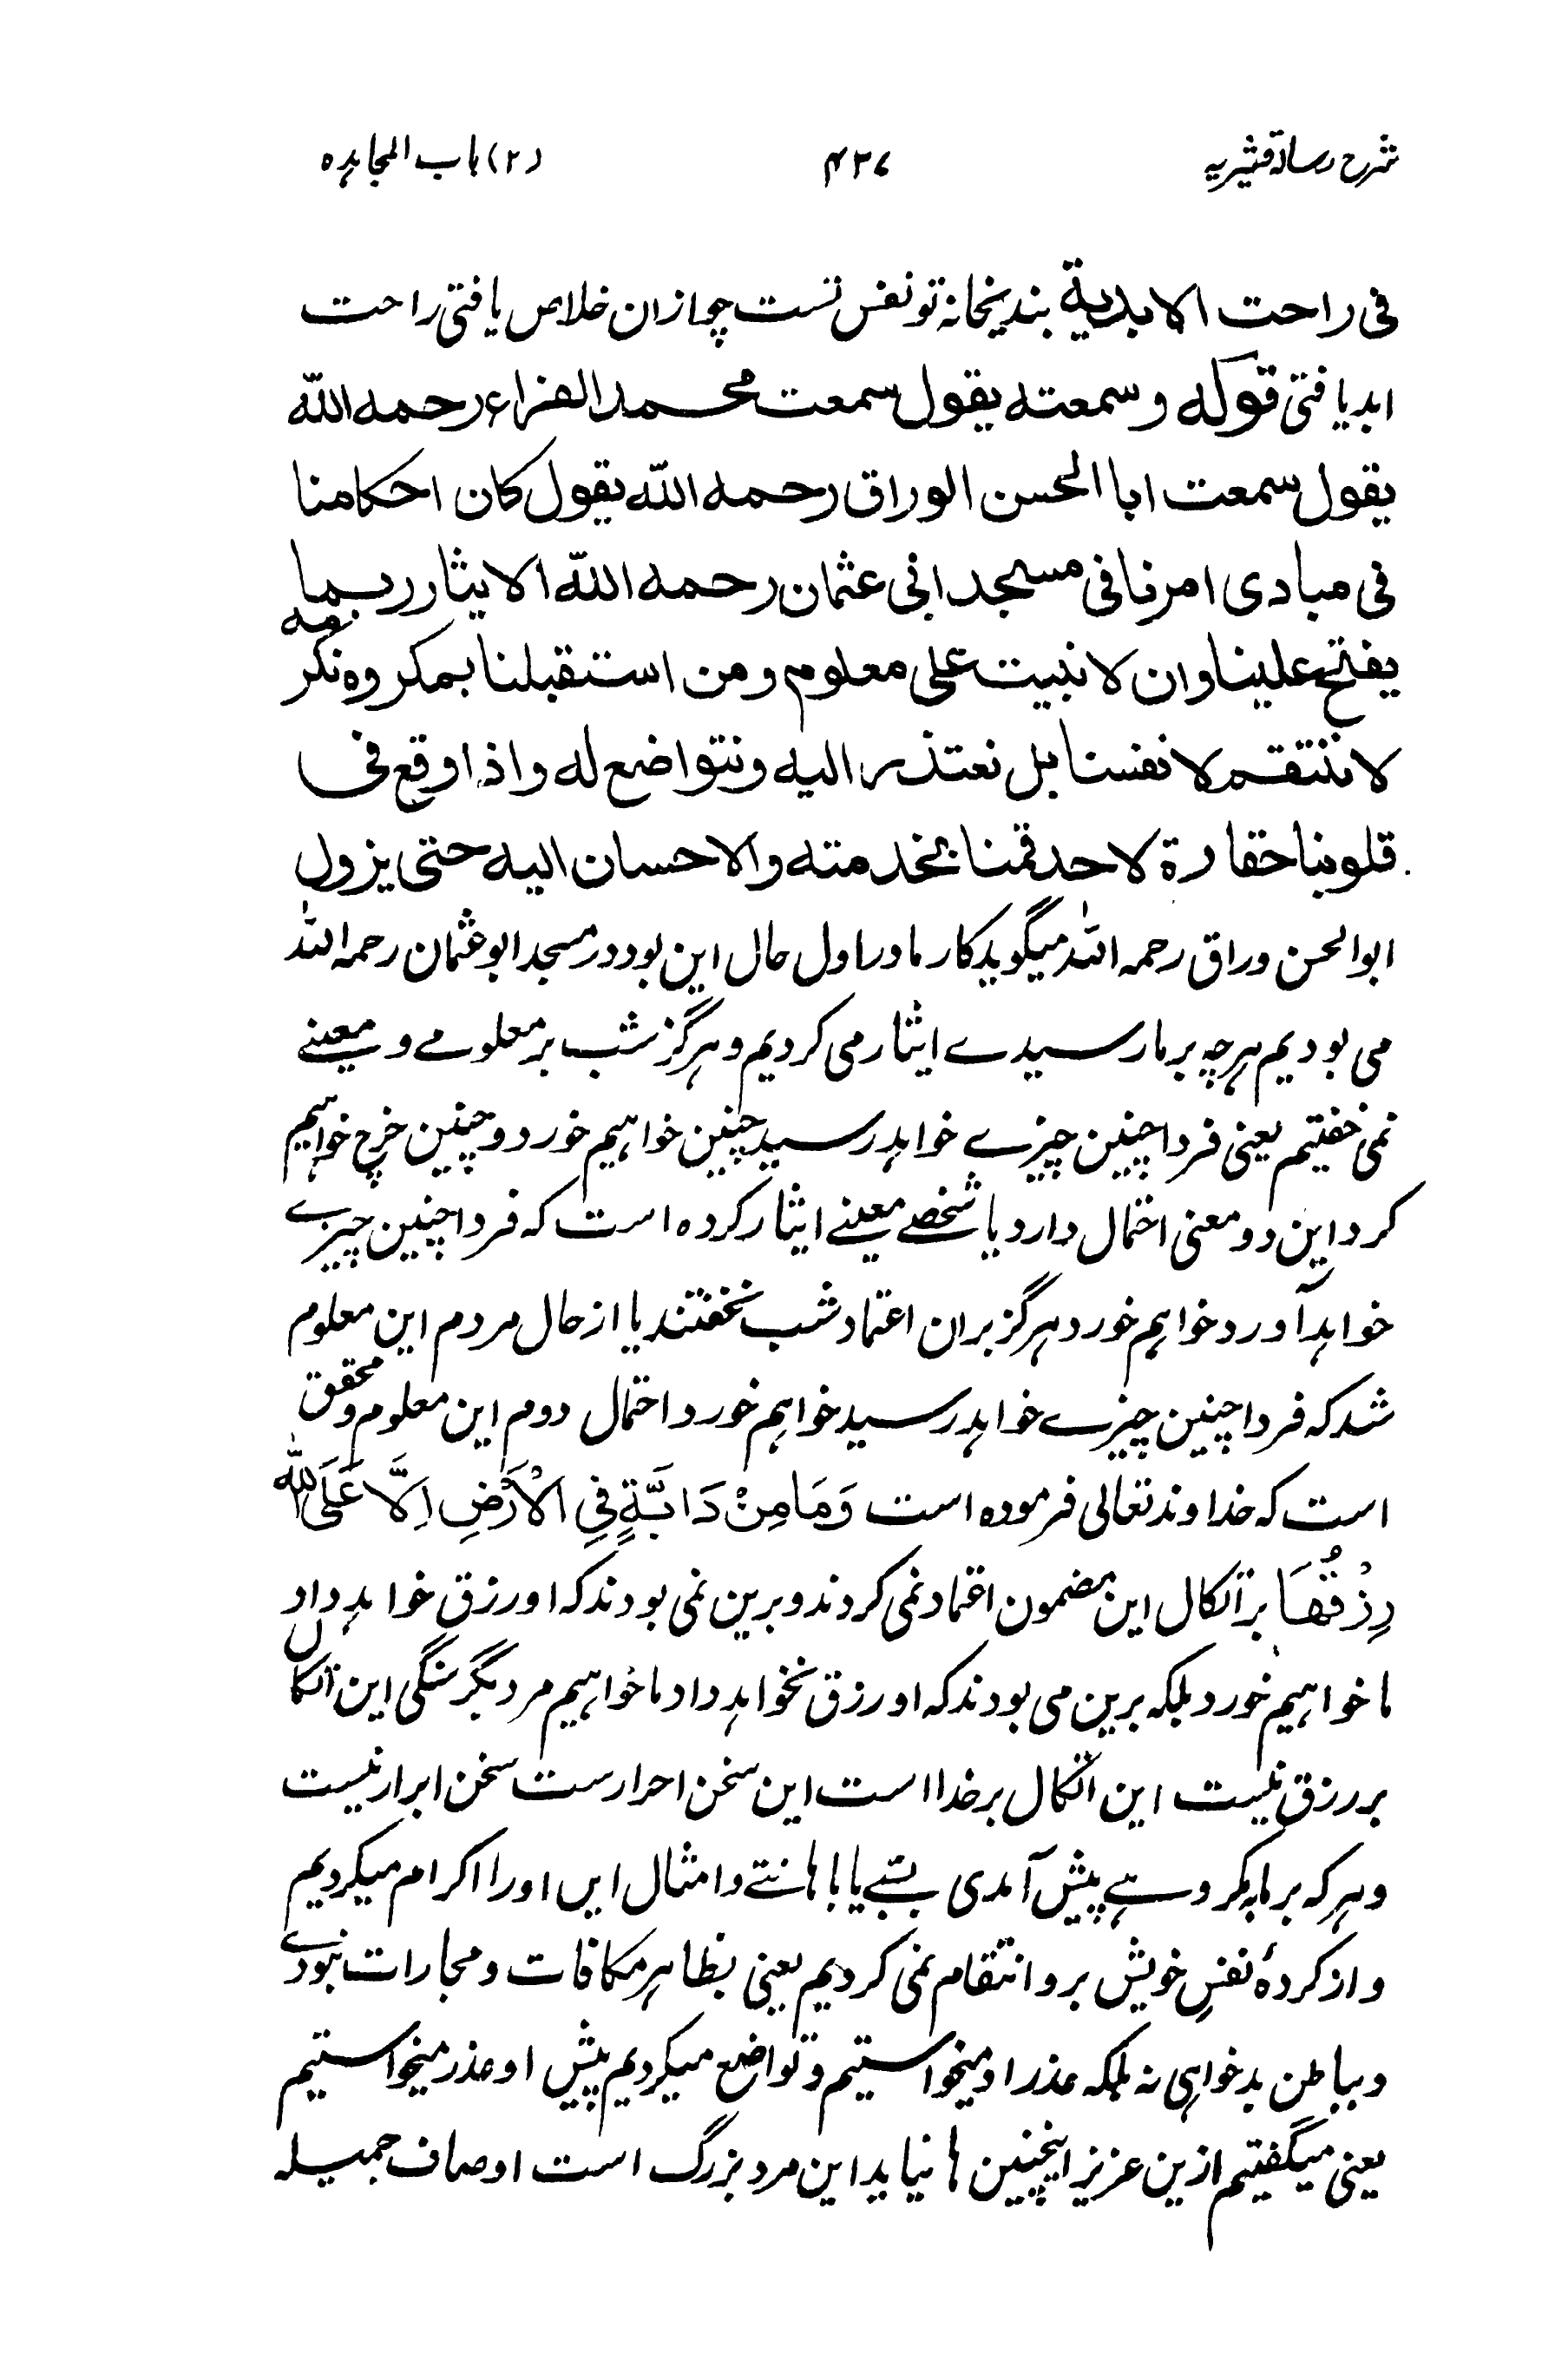 شرح رسالۀ قشیریه ۴۳۷ (۲) باب المجاهده
فی راحت الابدیة بندیخانه تو نفس تست چو ازان خلاص یافتی راحت
ابد یافتی قوله وسمعته یقول سمعت محمد الفراء رحمه الله
یقول سمعت ابا الحسن الوراق رحمه الله یقول کان احکامنا
فی مبادی امرنا فی مسجد ابی عثمان رحمه الله الایثار ربما
یفتح علینا وان لا نبیت علی معلوم ومن استقبلنا بمکروه نکرمه
لا ننتقم لانفسنا بل نعتذر الیه ونتواضع له واذا وقع فی
قلوبنا حقارة لاحد قمنا بخدمته والاحسان الیه حتی یزول
ابوالحسن وراق رحمه الله میگوید کار ما در اول حال این بود در مسجد ابو عثمان رحمه الله
می بودیم هرچه بر ما رسیدے ایثار می کردیم و هرگز شب بر معلومے و معینے
نمی خفتیم یعنی فردا چنین چیزے خواهد رسید چنین خواهیم خورد و چنین خرچ خواهیم
کرد این دو معنی احتمال دارد یا شخصے معینے ایثار کرده است که فردا چنین چیزے
خواهد آورد خواهیم خورد هرگز بران اعتماد شب نخفتند یا از حال مردم این معلوم
شد که فردا چنین چیزے خواهد رسید خواهیم خورد احتمال دوم این معلوم و محقق
است که خداوند تعالی فرموده است وَمَا مِنْ دَابَّةٍ فِي الْاَرْضِ اِلَّا عَلَى اللّٰهِ
رِزْقُهَا بر اتکال این مضمون اعتماد نمی کردند و برین نمی بودند که او رزق خواهد داد
ما خواهیم خورد بلکه برین می بودند که او رزق نخواهد داد ما خواهیم مرد بگرسنگی این اتکال
بر رزق نیست این اتکال بر خدا است این سخن احرارست سخن ابرار نیست
و هر که بر ما بمکروهے پیش آمدی بشتمے یا باهانتے و امثال ایں او را اکرام میکردیم
و از کردۂ نفسِ خویش برو انتقام نمی کردیم یعنی بظاهر مکافات و مجارات نبودے
و بباطن بدخواهی نه بلکه عذر او میخواستیم و تواضع میکردیم پیش او عذر میخواستیم
یعنی میگفتیم ازین عزیز اینچنین ها نیاید این مرد بزرگ است اوصاف جمیله